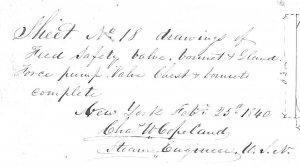 Sheet No 18 drawings of
Feed Safety Valve, bonnet & Gland
Force pump Valve Chest & bonnets
complete
New York Feby 25th 1840
Chas W Copeland,
Steam Engineer U.S.N.